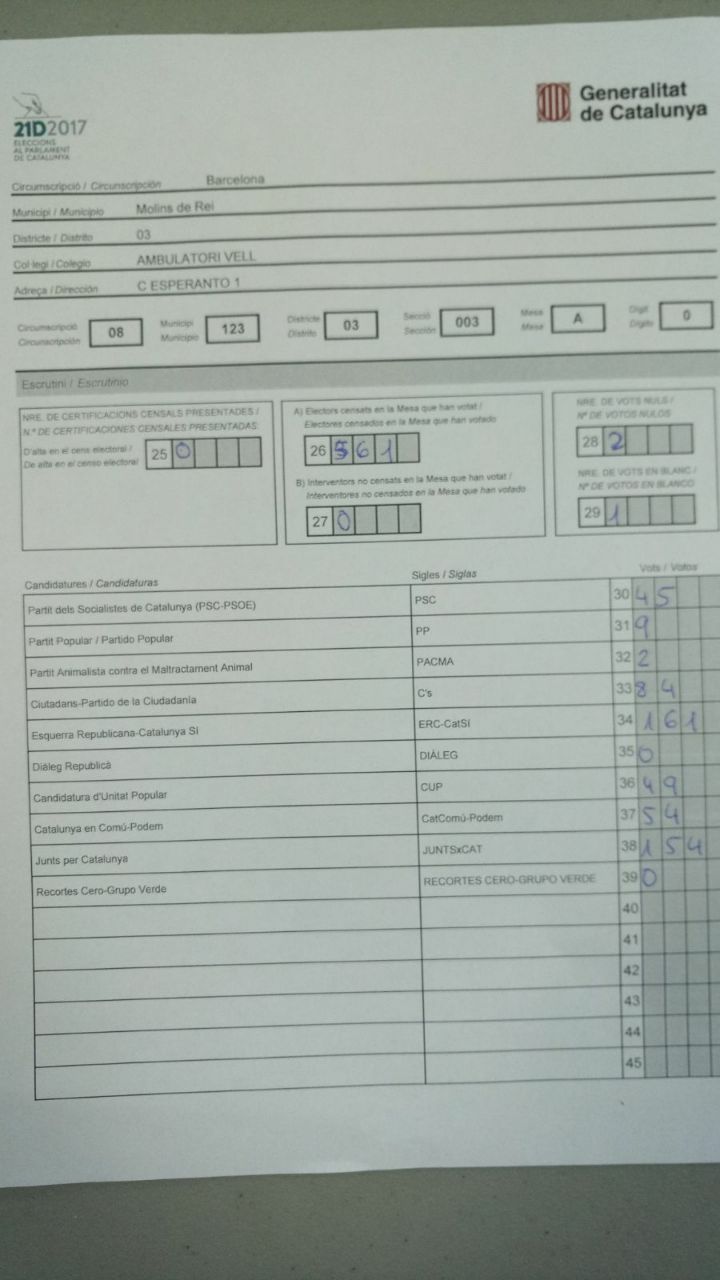 21D2017
ELECCIONS
AL PARLAMENT
DE CATALUNYA
Generalitat
de Catalunya
Circumscripció / Circunscripción Barcelona
Municipi / Municipio Molins de Rei
Districte / Distrito 03
Col·legi / Colegio AMBULATORI VELL
Adreça / Dirección C ESPERANTO 1
Circumscripció
Circunscripción 08
Municipi
Municipio 123
Districte
Distrito 03
Secció
Sección 003
Mesa
Mesa A
Dígit
Dígito 0
Escrutini / Escrutinio
NRE. DE CERTIFICACIONS CENSALS PRESENTADES /
N.º DE CERTIFICACIONES CENSALES PRESENTADAS:
D'alta en el cens electoral /
De alta en el censo electoral 25 0
A) Electors censats en la Mesa que han votat /
Electores censados en la Mesa que han votado
26 561
B) Interventors no censats en la Mesa que han votat /
Interventores no censados en la Mesa que han votado
27 0
NRE. DE VOTS NULS /
Nº DE VOTOS NULOS
28 2
NRE. DE VOTS EN BLANC /
Nº DE VOTOS EN BLANCO
29 1
Candidatures / Candidaturas Sigles / Siglas Vots / Votos
Partit dels Socialistes de Catalunya (PSC-PSOE) PSC 30 45
Partit Popular / Partido Popular PP 31 9
Partit Animalista contra el Maltractament Animal PACMA 32 2
Ciutadans-Partido de la Ciudadanía C's 33 84
Esquerra Republicana-Catalunya Sí ERC-CatSí 34 161
Diàleg Republicà DIÀLEG 35 0
Candidatura d'Unitat Popular CUP 36 49
Catalunya en Comú-Podem CatComú-Podem 37 54
Junts per Catalunya JUNTSxCAT 38 154
Recortes Cero-Grupo Verde RECORTES CERO-GRUPO VERDE 39 0
40
41
42
43
44
45